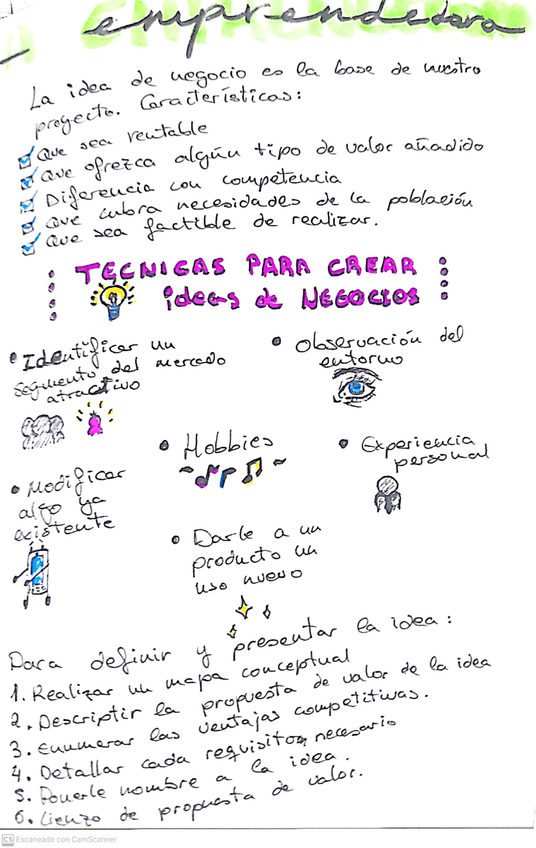 emprendedora
La idea de negocio es la base de nuestro
proyecto. Características:
Que sea rentable
Que ofrezca algún tipo de valor añadido
Diferencia con competencia
Que cubra necesidades de la población
Que sea factible de realizar.
TECNICAS PARA CREAR
ideas de NEGOCIOS
• Identificar un
segmento del mercado
atractivo
• Observación del
entorno
• Hobbies
• Experiencia
personal
• Modificar
algo ya
existente
• Darle a un
producto un
uso nuevo
Para definir y presentar la idea:
1. Realizar un mapa conceptual
2. Descriptir la propuesta de valor de la idea
3. Enumerar las ventajas competitivas.
4. Detallar cada requisito necesario
5. Ponerle nombre a la idea.
6. Lienzo de propuesta de valor.
CS Escaneado con CamScanner